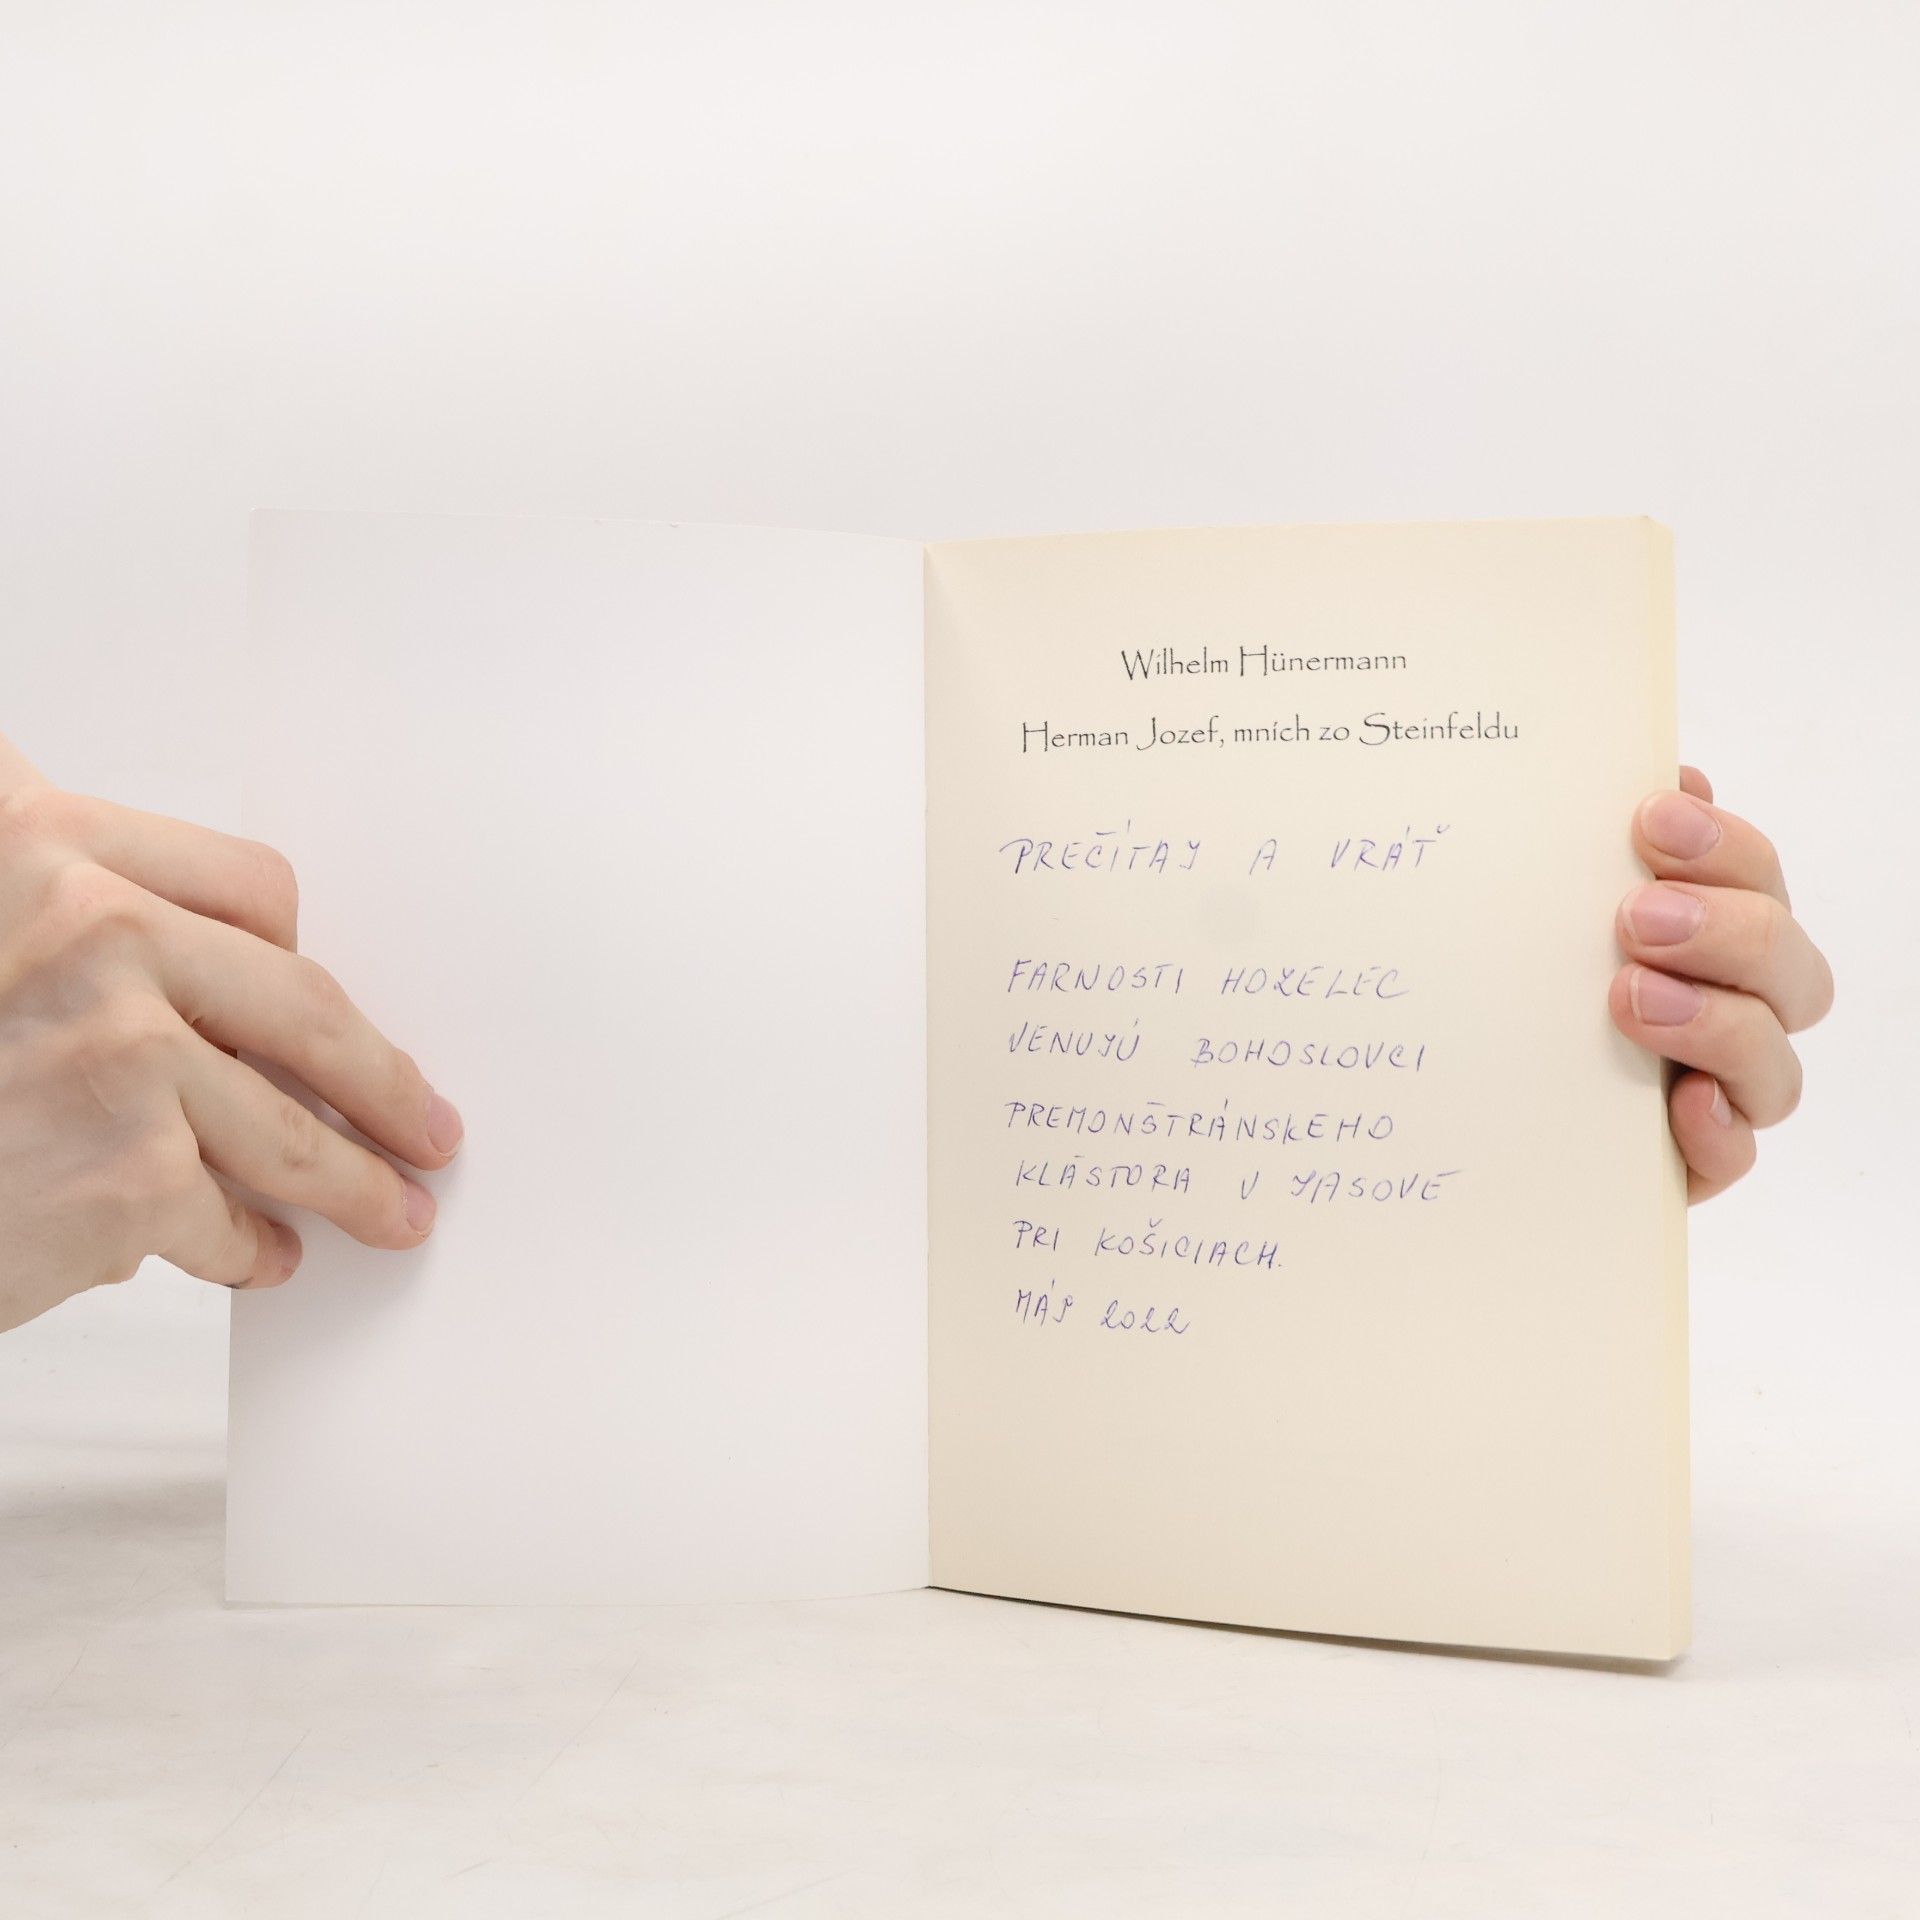 Wilhelm Hünermann
Herman Jozef, mních zo Steinfeldu
PREČÍTAJ A VRÁŤ
FARNOSTI HOZELEC
VENUJÚ BOHOSLOVCI
PREMONŠTRÁNSKEHO
KLÁSTORA V JASOVE
PRI KOŠICIACH.
MÁJ 2022